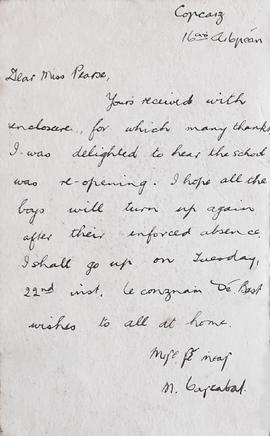 Corcaig
16adh Aibreán
Dear Miss Pearse,
Yours received with
enclosure, for which many thanks
I was delighted to hear the school
was re-opening. I hope all the
boys will turn up again
after their enforced absence.
I shall go up on Tuesday,
22nd inst. le congnamh Dé. Best
wishes to all at home.
Mise fé meas